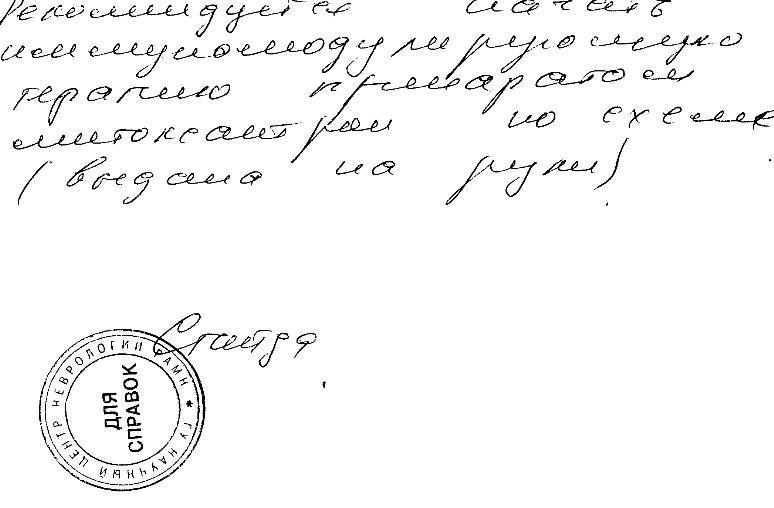 Рекомендуется начать
иммуномодулирующую
терапию препаратом
митоксантрон по схеме
(выдана на руки)
ГУ НАУЧНЫЙ ЦЕНТР НЕВРОЛОГИИ РАМН *
ДЛЯ
СПРАВОК